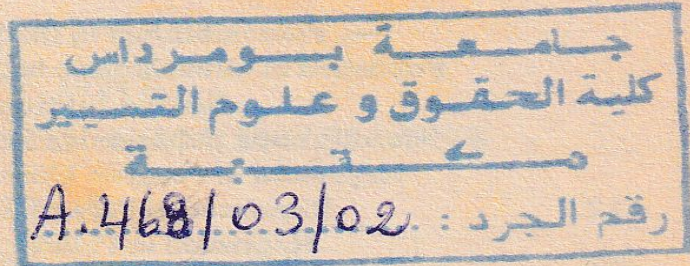 جامعة بومرداس
كلية الحقوق و علوم التسيير
مكتبة
رقم الجرد : A.468/03/02